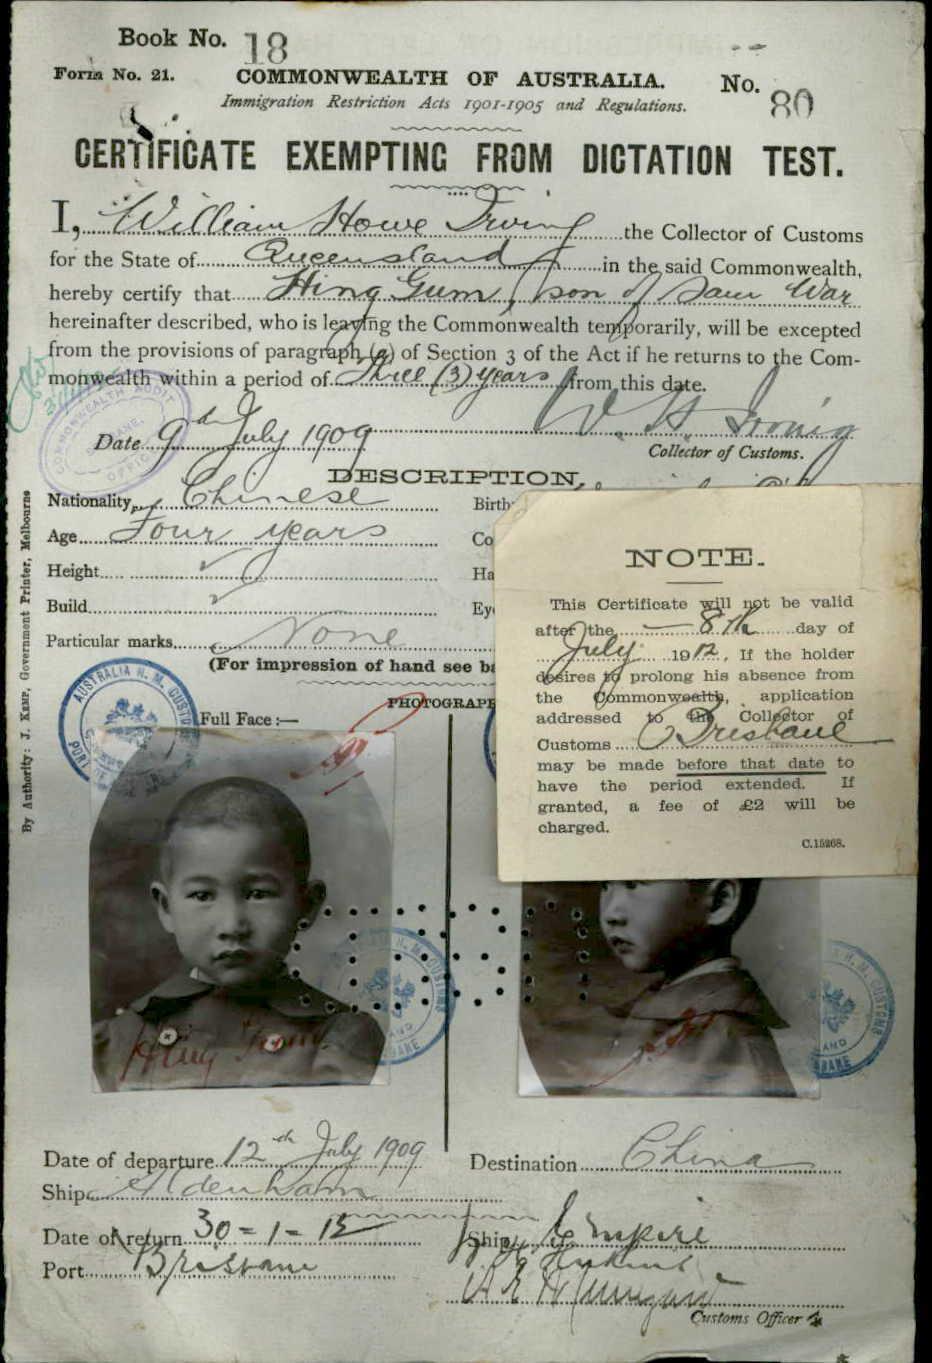 Book No. 18
Form No. 21. COMMONWEALTH OF AUSTRALIA. No. 80
Immigration Restriction Acts 1901-1905 and Regulations.
CERTIFICATE EXEMPTING FROM DICTATION TEST.
I, William Howe Irving the Collector of Customs
for the State of Queensland in the said Commonwealth,
hereby certify that Hing Gum, son of Sam War
hereinafter described, who is leaving the Commonwealth temporarily, will be excepted
from the provisions of paragraph (a) of Section 3 of the Act if he returns to the Com-
monwealth within a period of Three (3) years from this date.
COMMONWEALTH AUDIT
BRISBANE.
OFFICE
W. H. Irving
Date 9th July 1909
Collector of Customs.
DESCRIPTION.
Nationality Chinese Birth
Age Four years Co
Height Ha
Build Eye
Particular marks None
(For impression of hand see ba
PHOTOGRAP
Full Face :—
AUSTRALIA H. M. CUSTO
PORT OF
NOTE.
This Certificate will not be valid
after the 8th day of
July 1912. If the holder
desires to prolong his absence from
the Commonwealth, application
addressed to the Collector of
Customs Brisbane
may be made before that date to
have the period extended. If
granted, a fee of £2 will be
charged.
C.15268.
By Authority: J. KEMP, Government Printer, Melbourne
H. M. CUSTOMS
BRISBANE
Hing
Date of departure 12th July 1909 Destination China
Ship Aldenham
Date of return 30-1-12 Ship Empire
Port Brisbane
Customs Officer